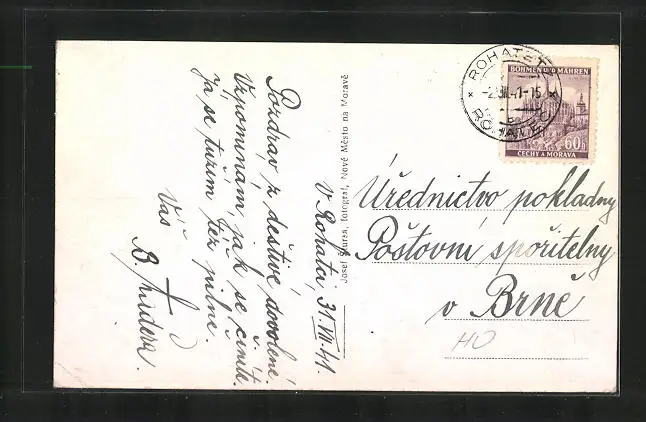 Pozdrav z deštivé dovolené.
Vzpomínám, jak se činíte.
Já se tužím též pilně.
Váš
V Rohatci, 31.VII.41.
Josef fotograf, Nové Město na Moravě
ROHATETZ
BÖHMEN UND MÄHREN
41-15
ROHATEC
60h
ČECHY A MORAVA
Úřednictvo pokladny
Poštovní spořitelny
v Brně
HO